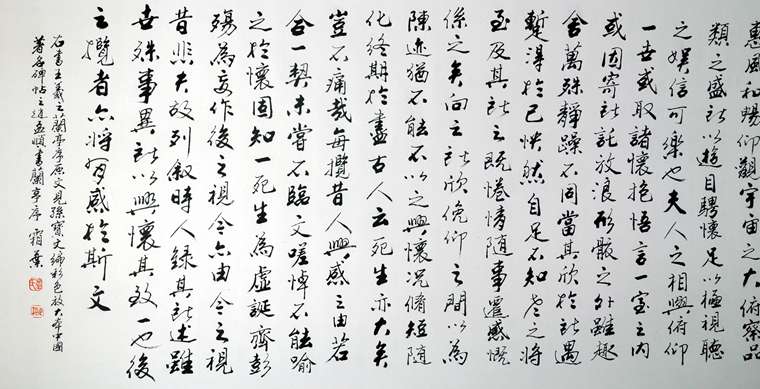 惠風和暢仰觀宇宙之大俯察品
類之盛所以遊目騁懷足以極視聽
之娛信可樂也夫人之相與俯仰
一世或取諸懷抱悟言一室之內
或因寄所託放浪形骸之外雖趣
舍萬殊靜躁不同當其欣於所遇
蹔得於己怏然自足不知老之將
至及其所之既惓情隨事遷感慨
係之矣向之所欣俛仰之間以為
陳迹猶不能不以之興懷況脩短隨
化終期於盡古人云死生亦大矣
豈不痛哉每攬昔人興感之由若
合一契未嘗不臨文嗟悼不能喻
之於懷固知一死生為虛誕齊彭
殤為妄作後之視今亦由今之視
昔悲夫故列敘時人錄其所述雖
世殊事異所以興懷其致一也後
之攬者亦將有感於斯文
右書王羲之蘭亭序原文見孫寶文編彩色放大本中國
著名碑帖之趙孟頫書蘭亭序 霜葉